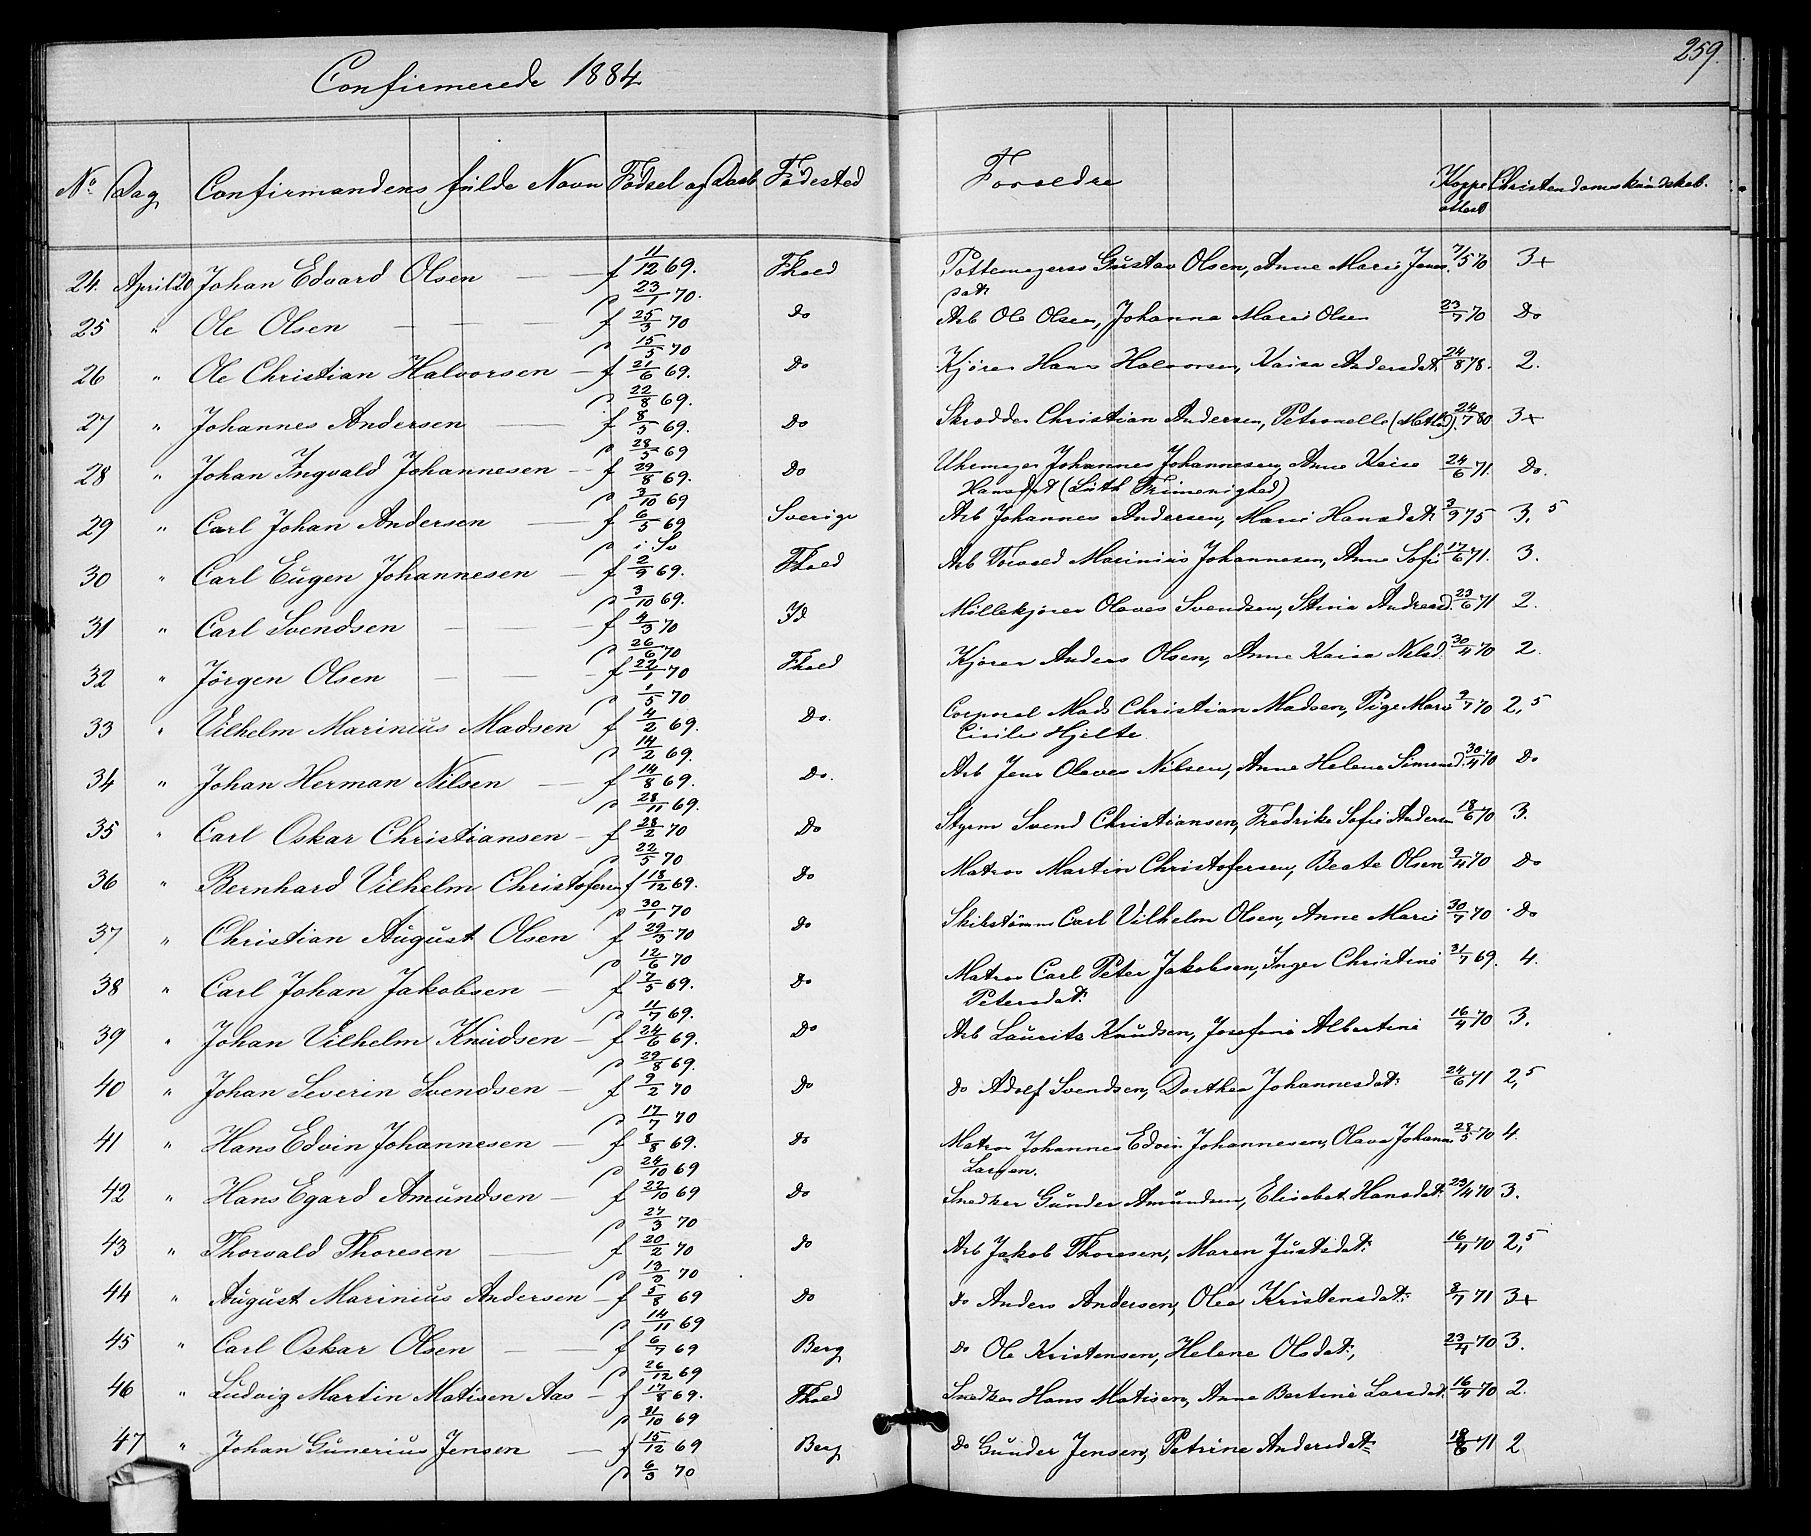 259.
Confirmerede 1884
No. Dag Confirmandens fulde Navn Fødsel og Daab Fødested Forældre Koppe attest Christendomskundskab.
24. April 20 Johan Edvard Olsen — — f 11/12 69. Fhald Pottemagersv Gustav Olsen, Anne Marie Jens 7/5 70 3+
p 23/1 70. dat:
25 " Ole Olsen — — — f 25/3 70 Do Arb Ole Olsen, Johanna Marie Olsen 23/7 70 Do
p 15/5 70
26 " Ole Christian Halvorsen — f 21/6 69. Do Kjører Hans Halvorsen, Kaisa Andersdat: 24/8 78. 2.
p 22/8 69.
27 " Johannes Andersen — f 8/3 69. Do Skrædder Christian Andersen, Petronelle 24/7 80 3+
p 28/5 69
28 " Johan Ingvald Johannesen — f 29/8 69. Do Uhrmager Johannes Johannesen, Anne Kaise 24/6 71 Do.
p 3/10 69 Hansdat (Luth Frimenighed)
29 " Carl Johan Andersen — f 6/5 69 Sverige Arb Johannes Andersen, Marie Hansdat: 3/9 75 3,5
p i. Sv
30 " Carl Eugen Johannesen — f 2/9 69. Fhald Arb Torvald Marinius Johannesen, Anne Sofie 17/6 71. 3.
p 3/10 69.
31 " Carl Svendsen — — f 4/3 70 Id Møllekjører Olaves Svendsen, Stina Andreasd. 23/6 71 2.
p 26/6 70
32 " Jørgen Olsen — — — f 22/1 70 Fhald Kjører Anders Olsen, Anne Kaisa Nilsd. 30/4 70 2.
p 1/5 70
33 " Vilhelm Marinius Madsen f 4/2 69. Do. Corporal Mads Christian Madsen, Pige Mare 9/7 70 2,5
p 14/2 69. Cicilie Hjelte
34 " Johan Herman Nilsen — f 14/8 69. Do. Arb Jens Olaves Nilsen, Anne Helene Simensd. 30/4 70 Do
p 28/11 69.
35 " Carl Oskar Christiansen — f 28/2 70 Do Styrm Svend Christiansen, Fredrike Sofie Andersen 18/6 70 3.
p 22/5 70
36 " Bernhard Vilhelm Christofersen f 18/12 69. Do Matros Martin Christofersen, Beate Olsen 9/4 70 Do
p 30/1 70
37 " Christian August Olsen f 29/3 70 Do Skibstømm Carl Vilhelm Olsen, Anne Marie 30/7 70 Do
p 12/6 70
38 " Carl Johan Jakobsen — f 7/5 69. Do Matros Carl Peter Jakobsen, Inger Christine 31/7 69. 4.
p 11/7 69. Petersdat:
39 " Johan Vilhelm Knudsen — f 24/6 69. Do Arb Laurits Knudsen, Josefine Albertine 16/4 70 3.
p 29/8 69.
40 " Johan Severin Svendsen — f 9/2 70 Do do Adolf Svendsen, Dorthea Johannesdat: 24/6 71 2,5
p 17/7 70
41 " Hans Edvin Johannesen — f 8/8 69. Do Matros Johannes Edvin Johannesen, Olava Johanne 28/5 70 4.
p 24/10 69 Larsen.
42 " Hans Egard Amundsen — f 22/10 69 Do Snedker Gunder Amundsen, Elisabet Hansdat: 23/4 70 3.
p 27/3 70
43 " Thorvald Thoresen — — f 20/2 70 Do Arb Jakob Thoresen, Maren Justsdat: 16/4 70 2,5
p 13/3 70
44 " August Marinius Andersen — f 5/8 69 Do do Anders Andersen, Olea Kristensdat: 2/7 71 3+
p 14/11 69
45 " Carl Oskar Olsen — — f 6/7 69 Berg do Ole Kristensen, Helene Olsdat:, 23/4 70 3.
p 26/12 69
46 " Ludvig Martin Matisen Aas — f 17/8 69. Fhald Snedker Hans Matisen, Anne Bertine Larsdat. 16/4 70 2.
p 31/10 69
47 " Johan Gunerius Jensen — f 15/12 69 Berg do Gunder Jensen, Petrine Andersdat: 18/6 71 2
p 6/3 70